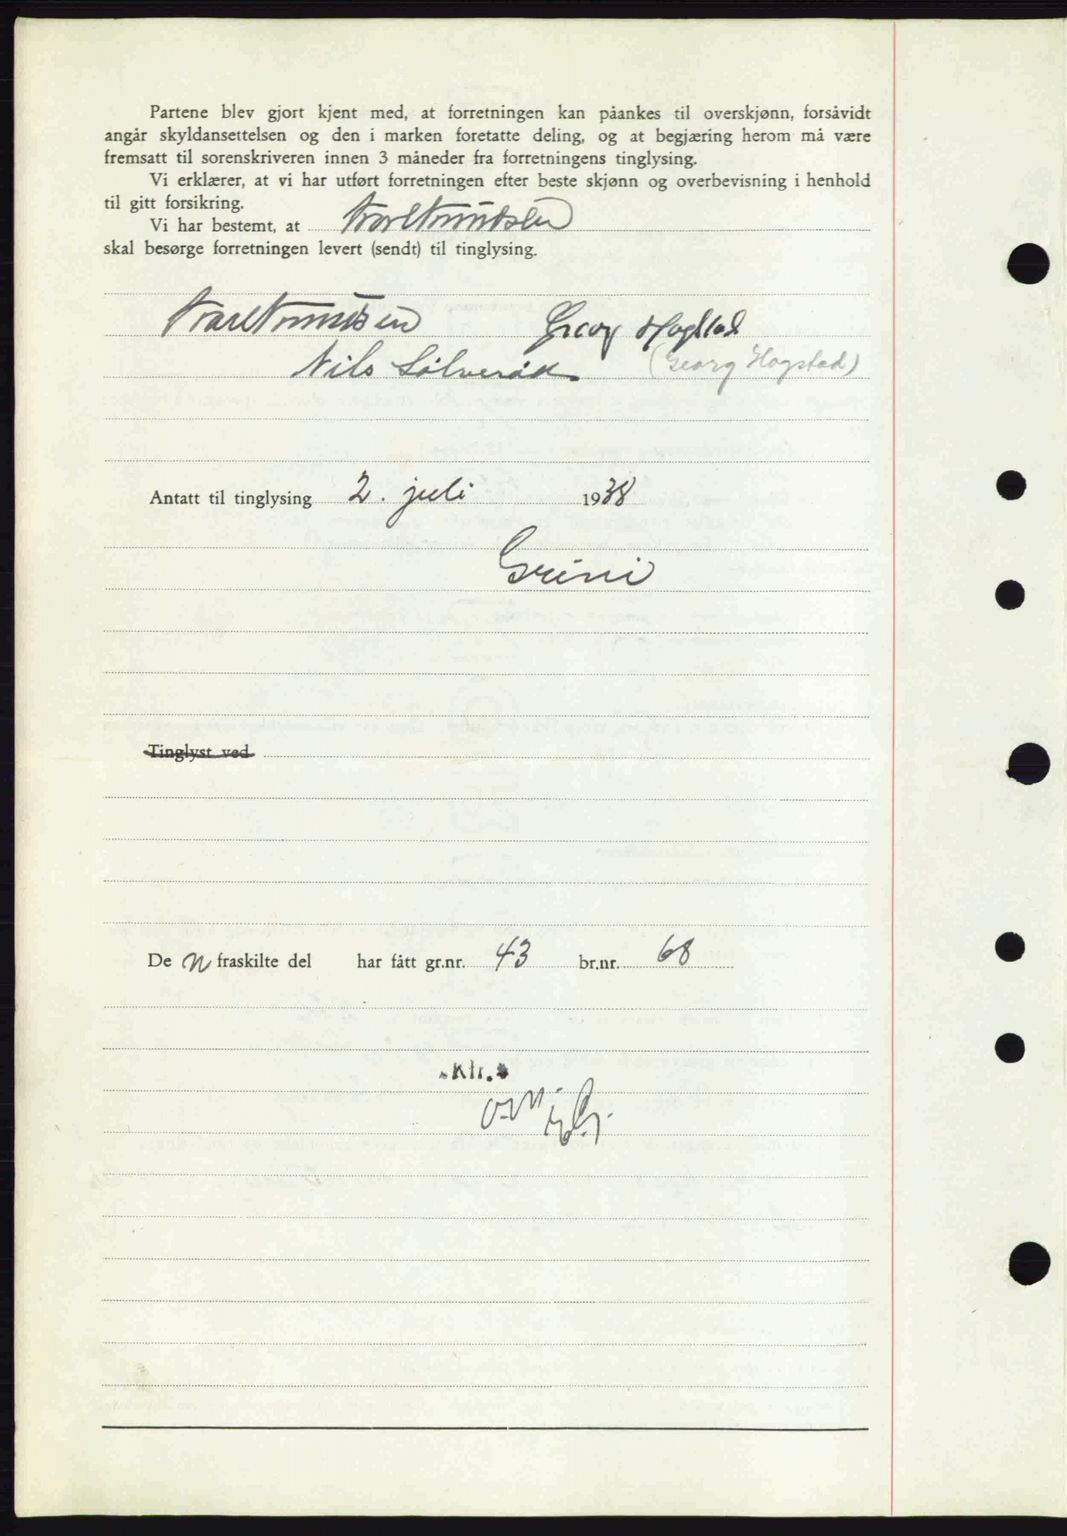 Partene blev gjort kjent med, at forretningen kan påankes til overskjønn, forsåvidt
angår skyldansettelsen og den i marken foretatte deling, og at begjæring herom må være
fremsatt til sorenskriveren innen 3 måneder fra forretningens tinglysing.
Vi erklærer, at vi har utført forretningen efter beste skjønn og overbevisning i henhold
til gitt forsikring.
Vi har bestemt, at
skal besørge forretningen levert (sendt) til tinglysing.
Georg Hogstad
Nils (Georg Hogstad)
Antatt til tinglysing 2. juli 1938
Grini
Tinglyst ved
De n fraskilte del har fått gr.nr. 43 br.nr. 68
Klr.